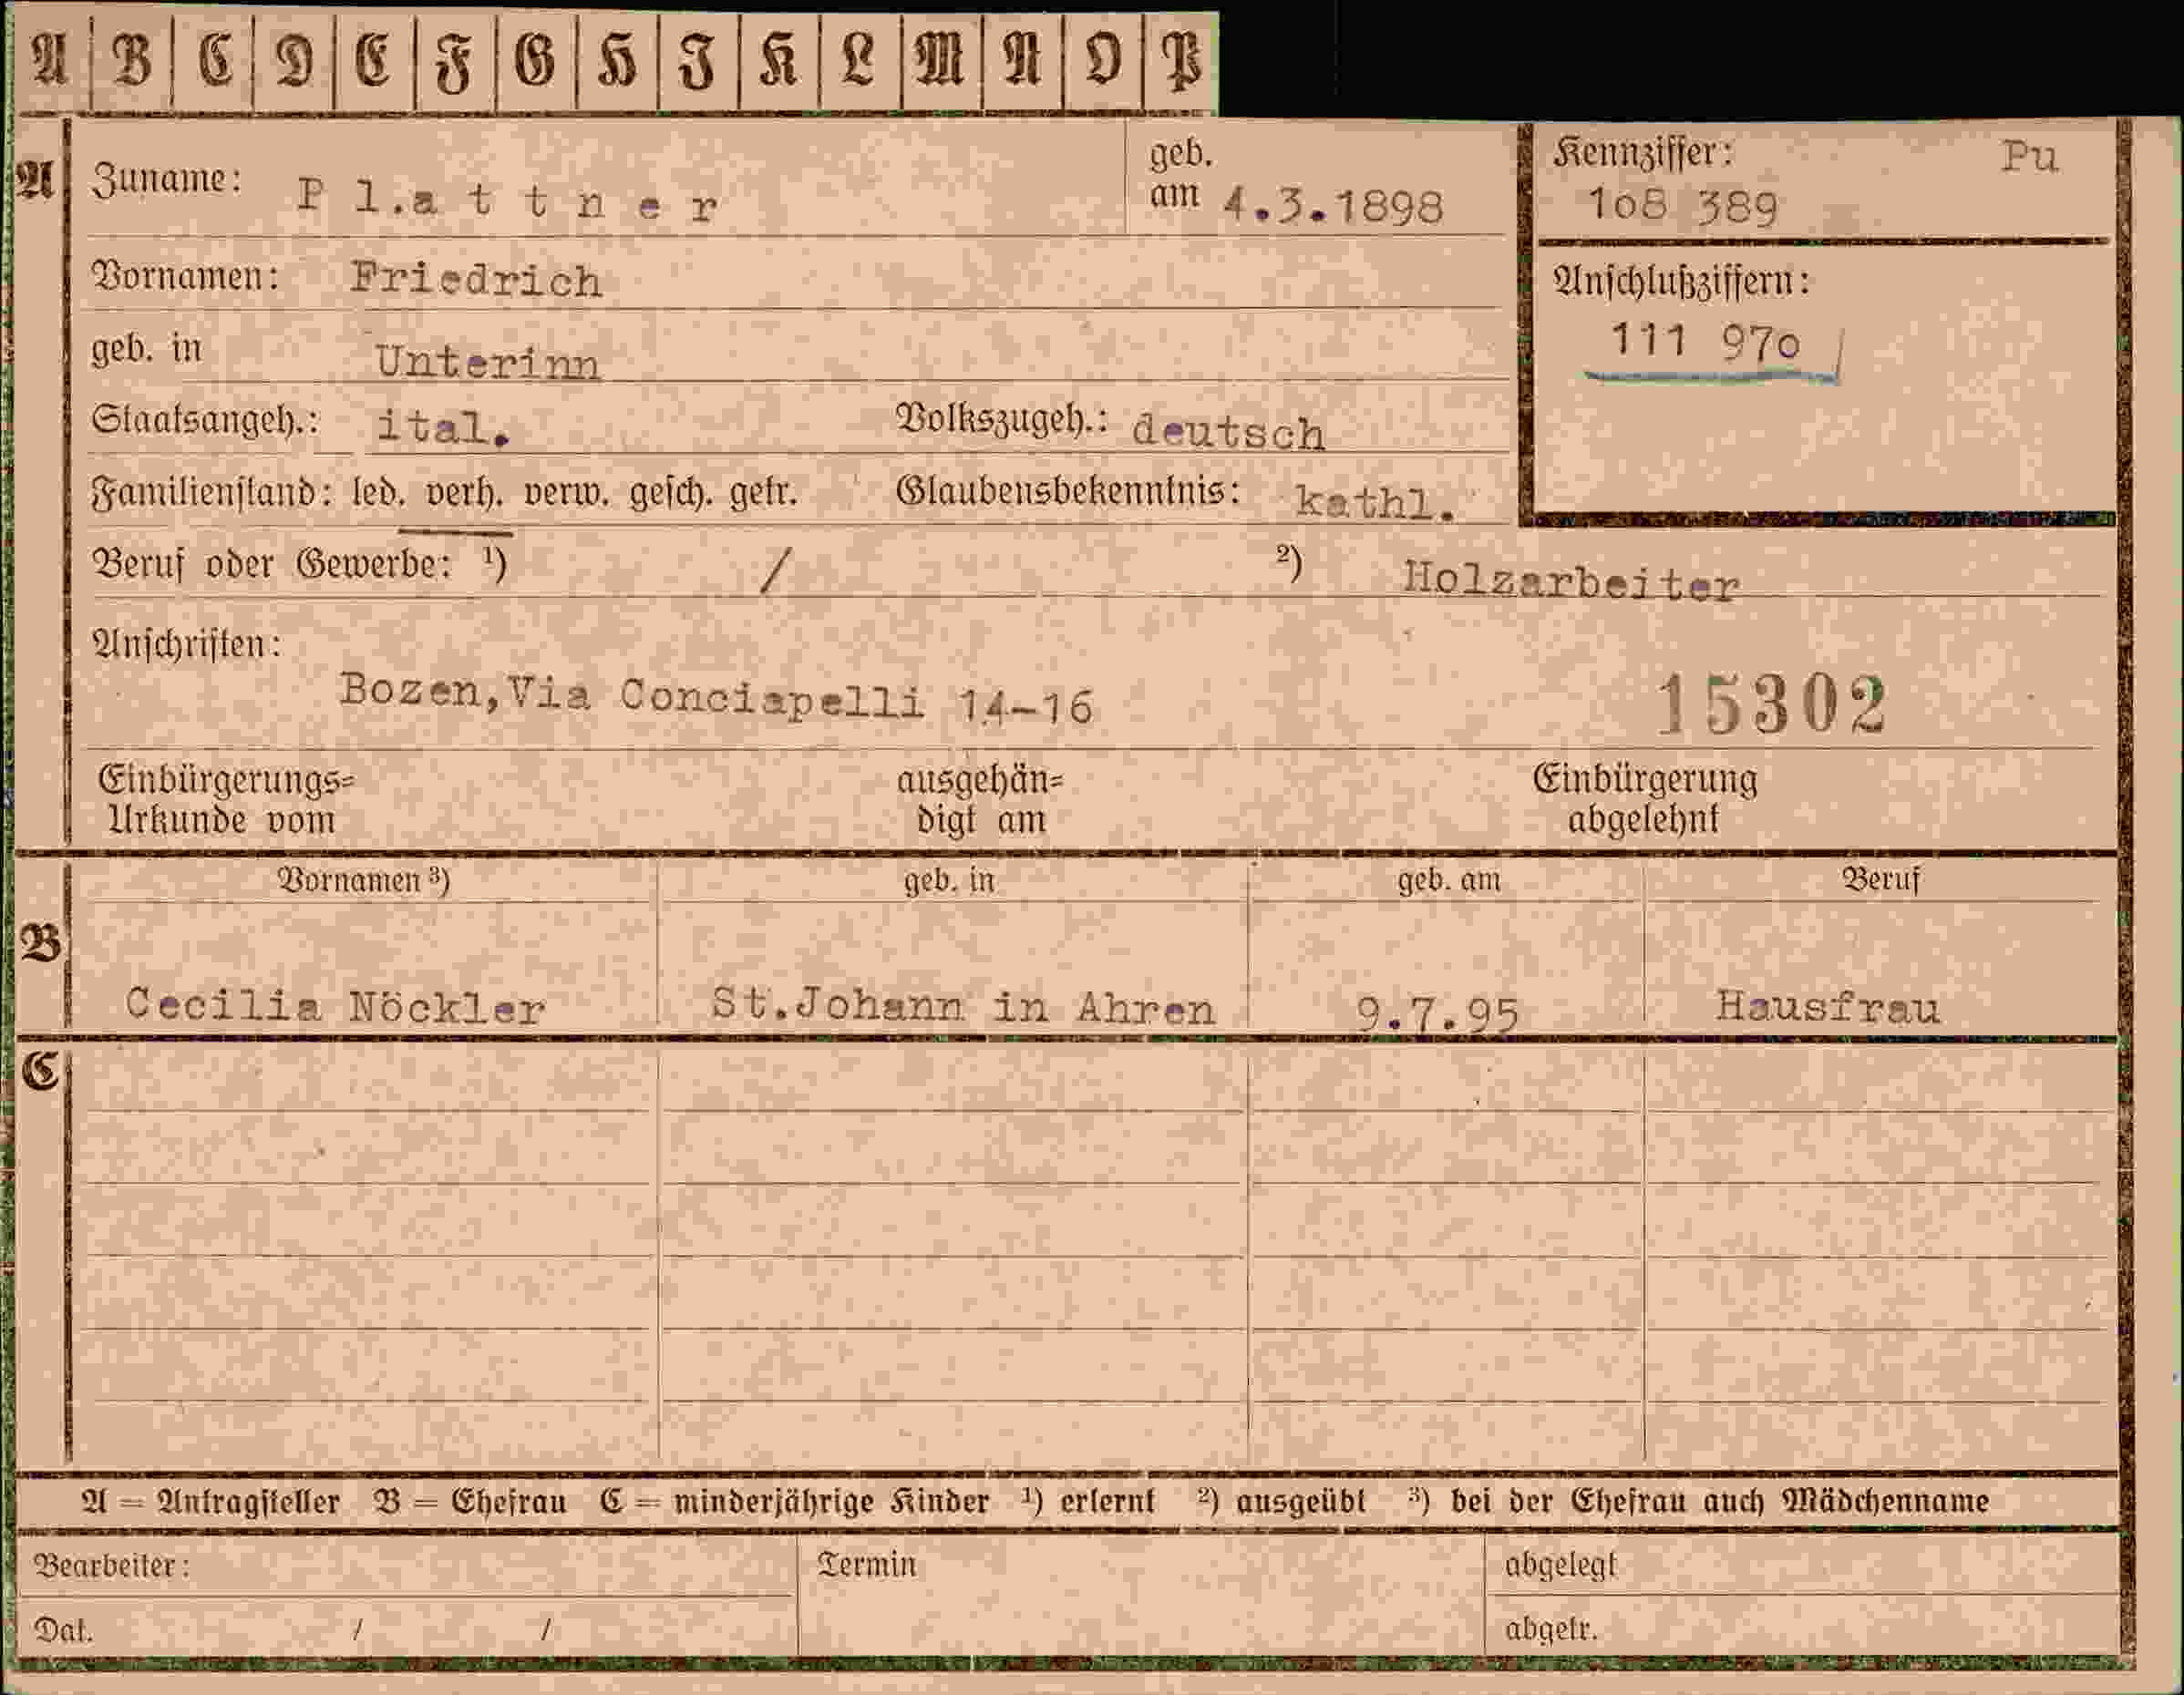 A B C D E F G H I K L M N O P
A Zuname: P l.a t t n e r geb. am 4.3.1898 Kennziffer: Pu
108 389
Vornamen: Friedrich
Anschlußziffern:
111 970
geb. in Unterinn
Staatsangeh.: ital. Volkszugeh.: deutsch
Familienstand: led. verh. verw. gesch. getr. Glaubensbekenntnis: kathl.
Beruf oder Gewerbe: ¹) / ²) Holzarbeiter
Anschriften:
Bozen,Via Conciapelli 14-16 15302
Einbürgerungs= ausgehän= Einbürgerung
Urkunde vom digt am abgelehnt
B Vornamen ³) geb. in geb. am Beruf
Cecilia Nöckler St.Johann in Ahren 9.7.95 Hausfrau
C
A = Antragsteller B = Ehefrau C = minderjährige Kinder ¹) erlernt ²) ausgeübt ³) bei der Ehefrau auch Mädchenname
Bearbeiter: Termin abgelegt
Dat. / / abgetr.